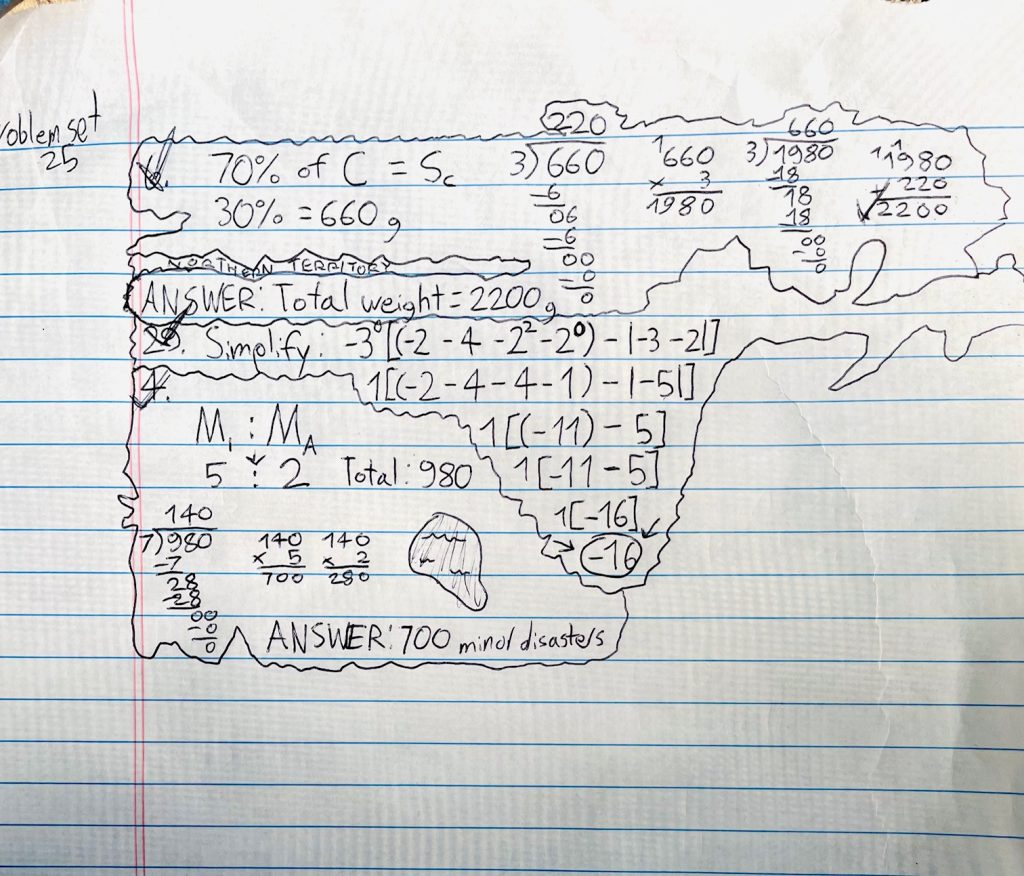 Problem set
25
1. 70% of C = Sc
30% = 660g
220
3)660
-6
06
-6
00
-0
0
1
660
x 3
1980
660
3)1980
18
18
18
00
-0
0
11
1980
+ 220
2200
NORTHERN TERRITORY
ANSWER: Total weight = 2200g
29. Simplify. -3⁰[(-2 - 4 - 2² - 2⁰) - |-3 - 2|]
1[(-2 - 4 - 4 - 1) - |-5|]
1[(-11) - 5]
1[-11 - 5]
1[-16]
-16
4.
M₁ : M_A
5 : 2 Total: 980
140
7)980
-7
28
-28
00
-0
0
140
x 5
700
140
x 2
280
ANSWER: 700 minor disasters